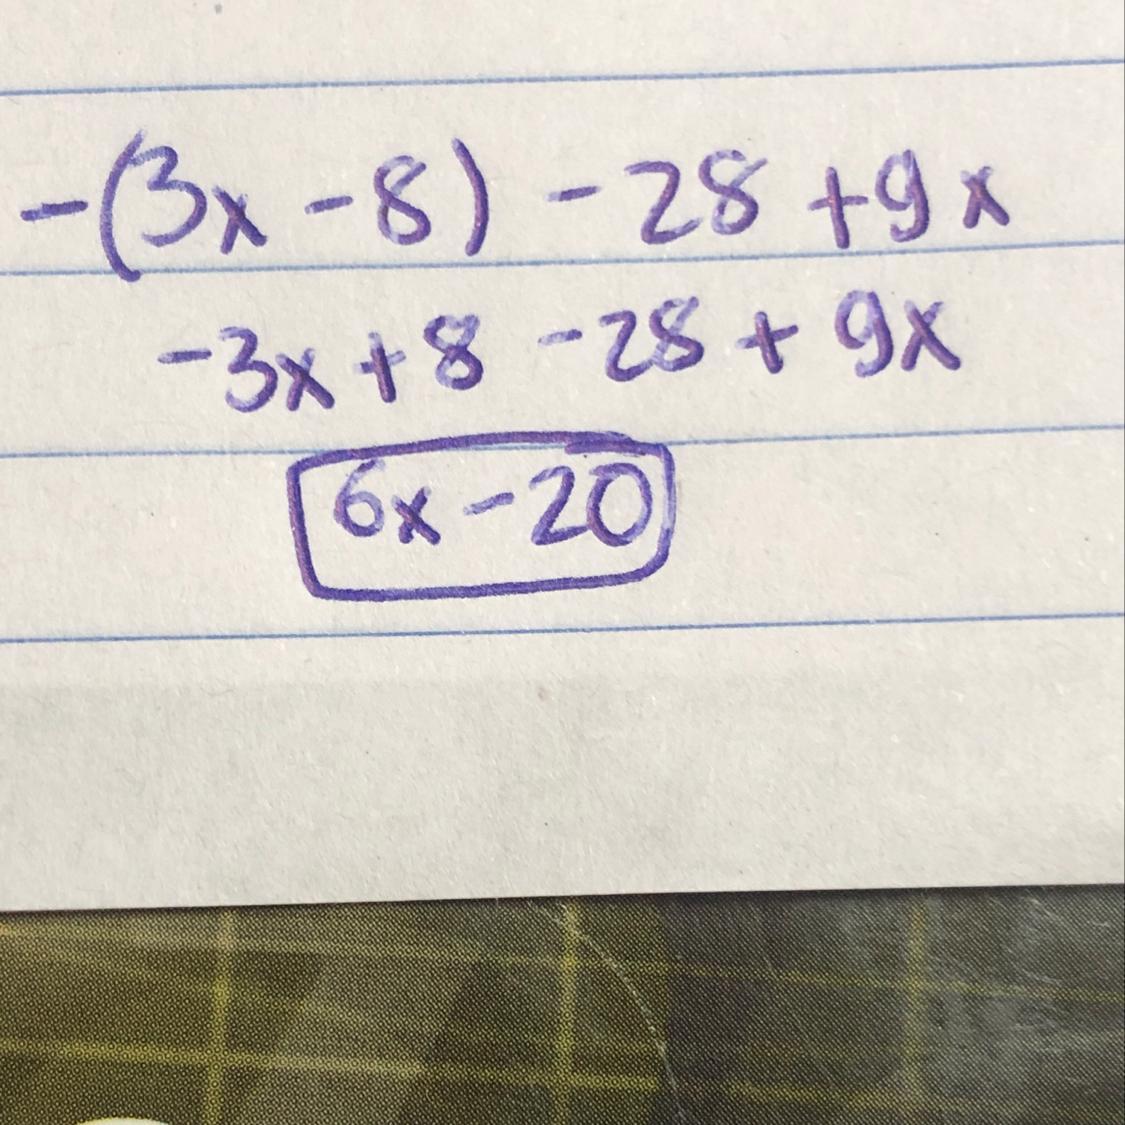 -(3x -8) -28 +9x
-3x+8 -28 + 9x
6x-20